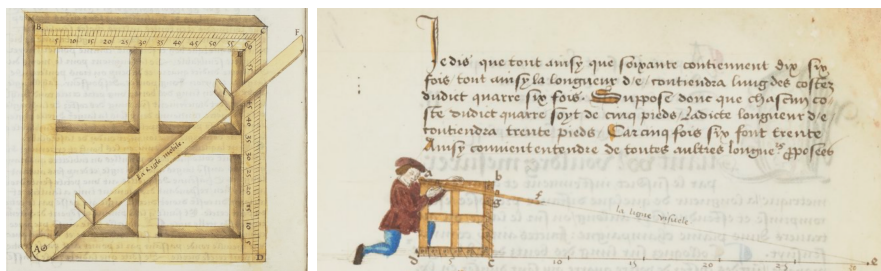 B C F
5 10 15 20 25 30 35 40 45 50 55
E
La Rigle mobile.
A D
Je dis que tout ainsy que soixante contiennent dix six
fois tout ainsy la longueur d/e/ contiendra lung des costez
dudict quarre six fois. Suppose donc que chascun co
ste dudict quarre soyt de cinq pieds/ Ladicte longueur d/e
contiendra trente pieds/ Car cinq fois six font trente
Ainsy convient entendre de toutes aultres
a b
g f
la ligne visuele
d 5 c 10 15 25 e